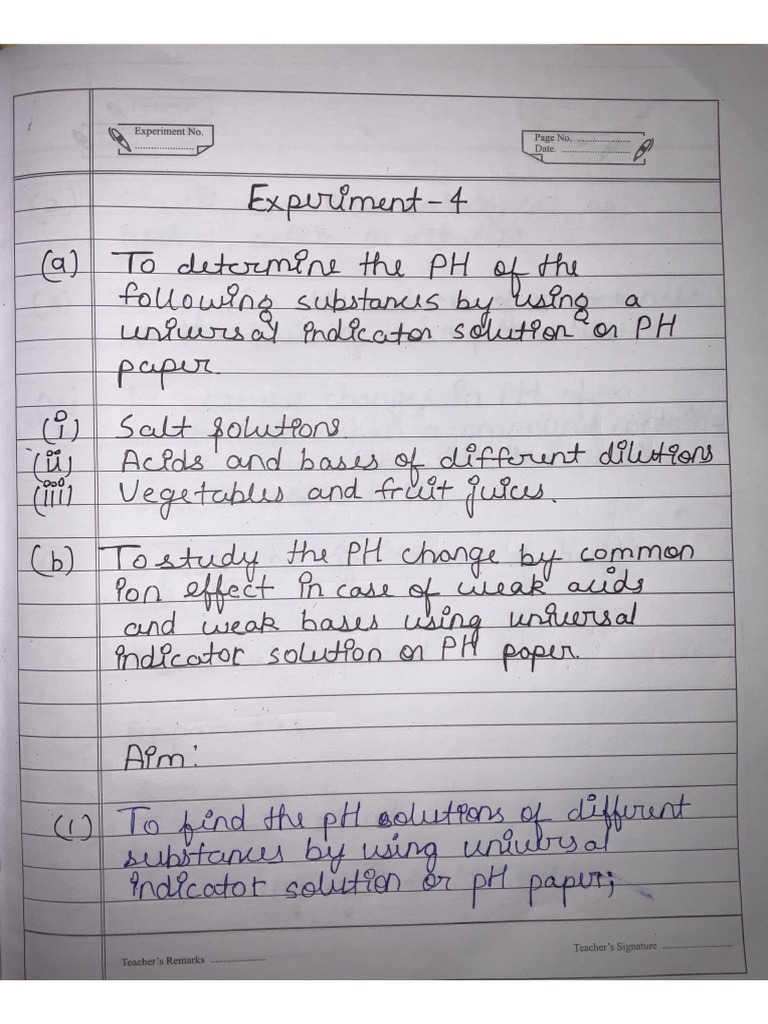 Experiment No.
Page No.
Date.
Experiment-4
(a) To determine the PH of the
following substances by using a
universal indicator solution or PH
paper.
(i) Salt solutions.
(ii) Acids and bases of different dilutions
(iii) Vegetables and fruit juices.
(b) To study the PH change by common
ion effect in case of weak acids
and weak bases using universal
indicator solution or PH paper.
Aim:
(1) To find the pH solutions of different
substances by using universal
indicator solution or pH paper;
Teacher's Signature
Teacher's Remarks